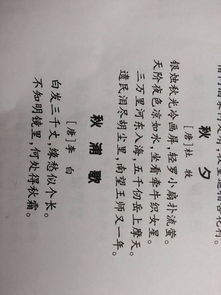 秋 夕
[唐]杜 牧
银烛秋光冷画屏,轻罗小扇扑流萤。
天阶夜色凉如水,坐看牵牛织女星。
三万里河东入海,五千仞岳上摩天。
遗民泪尽胡尘里,南望王师又一年。
秋 浦 歌
[唐]李 白
白发三千丈,缘愁似个长。
不知明镜里,何处得秋霜。